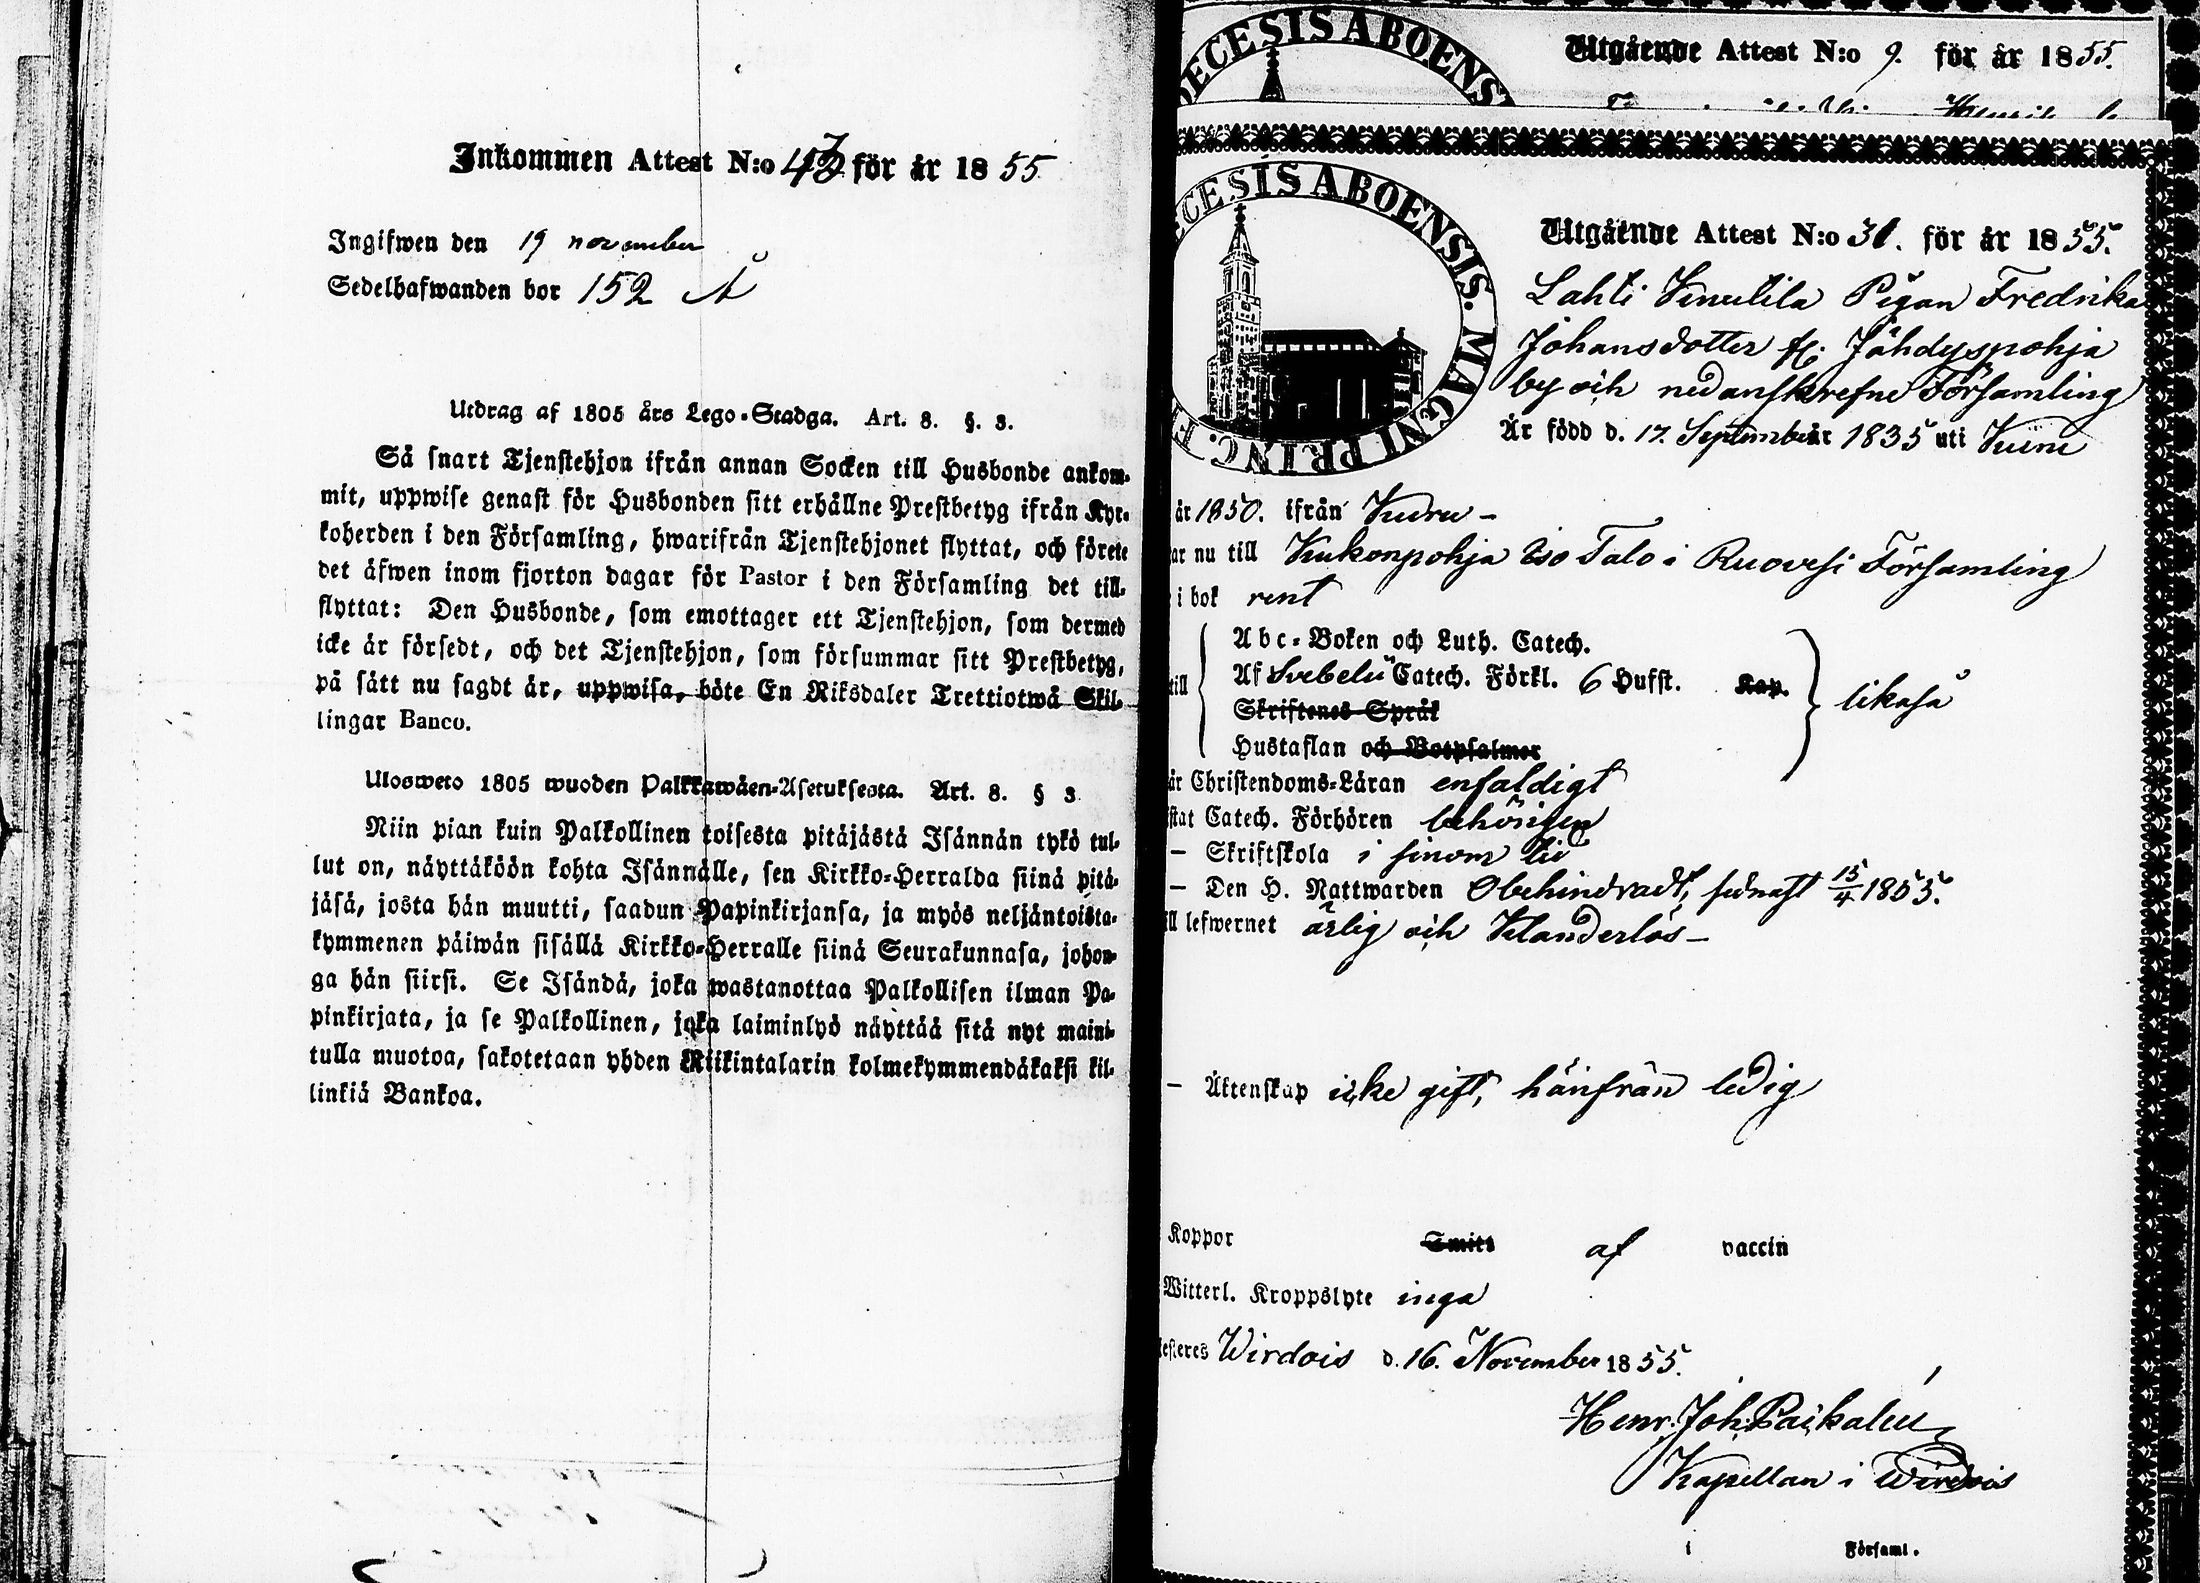 Inkommen Attest N:o 43 för år 1855
Ingifwen den 19 november
Sedelhafwanden bor 152 Å
Utdrag af 1805 års Lego-Stadga. Art. 8. §. 3.
Så snart Tjenstehjon ifrån annan Socken till Husbonde ankom-
mit, uppwise genast för Husbonden sitt erhållne Prestbetyg ifrån Kyr-
koherden i den Församling, hwarifrån Tjenstehjonet flyttat, och förete
det äfwen inom fjorton dagar för Pastor i den Församling det till-
flyttat: Den Husbonde, som emottager ett Tjenstehjon, som dermed
icke är försedt, och det Tjenstehjon, som försummar sitt Prestbetyg,
på sätt nu sagdt är, uppwisa, böte En Riksdaler Trettiotwå Skil-
lingar Banco.
Ulosweto 1805 wuoden Palkkawäen-Asetuksesta. Art. 8. § 3
Niin pian kuin Palkollinen toisesta pitäjästä Isännän tykö tul-
lut on, näyttäköön kohta Isännälle, sen Kirkko-Herralda siinä pitä-
jäsä, josta hän muutti, saadun Papinkirjansa, ja myös neljäntoista-
kymmenen päiwän sisällä Kirkko-Herralle siinä Seurakunnasa, johon-
ga hän siirsi. Se Isändä, joka wastanottaa Palkollisen ilman Pa-
pinkirjata, ja se Palkollinen, joka laiminlyö näyttää sitä nyt maini-
tulla muotoa, sakotetaan yhden Riikintalarin kolmekymmendäkaksi kil-
linkiä Bankoa.
DECESIS ABOENS
Utgående Attest N:o 9. för år 1855.
CESIS ABOENSIS. MAGNI PRINC. F
Utgående Attest N:o 31. för år 1855.
Lahti Knutila Pigan Fredrika
Johansdotter fr. Jähdyspohja
by och nedanskrefne Församling
Är född d. 17. September år 1835 uti Kuru
år 1850. ifrån Kuru –
ar nu till Kukonpohja Iso Talo i Ruovesi Församling
i bok rent
till
Abc-Boken och Luth. Catech.
Af Svebelii Catech. Förkl. 6 Hufst. Kap.
Skriftenes Språk
Hustaflan och Botpsalmer
likaså
år Christendoms-Läran enfaldigt
stat Catech. Förhören behörigen
– Skriftskola i sinom tid
– Den H. Nattwarden Obehindradt, sednast 15/4 1855.
ill lefwernet ärlig och Klanderlös –
– Äktenskap icke gift, härifrån ledig
Koppor Smitt af vaccin
Witterl. Kroppslyte inga
esteres Wirdois d. 16. November 1855.
Henr. Joh. Paikalen
Kapellan i Wirdois
i Församl.